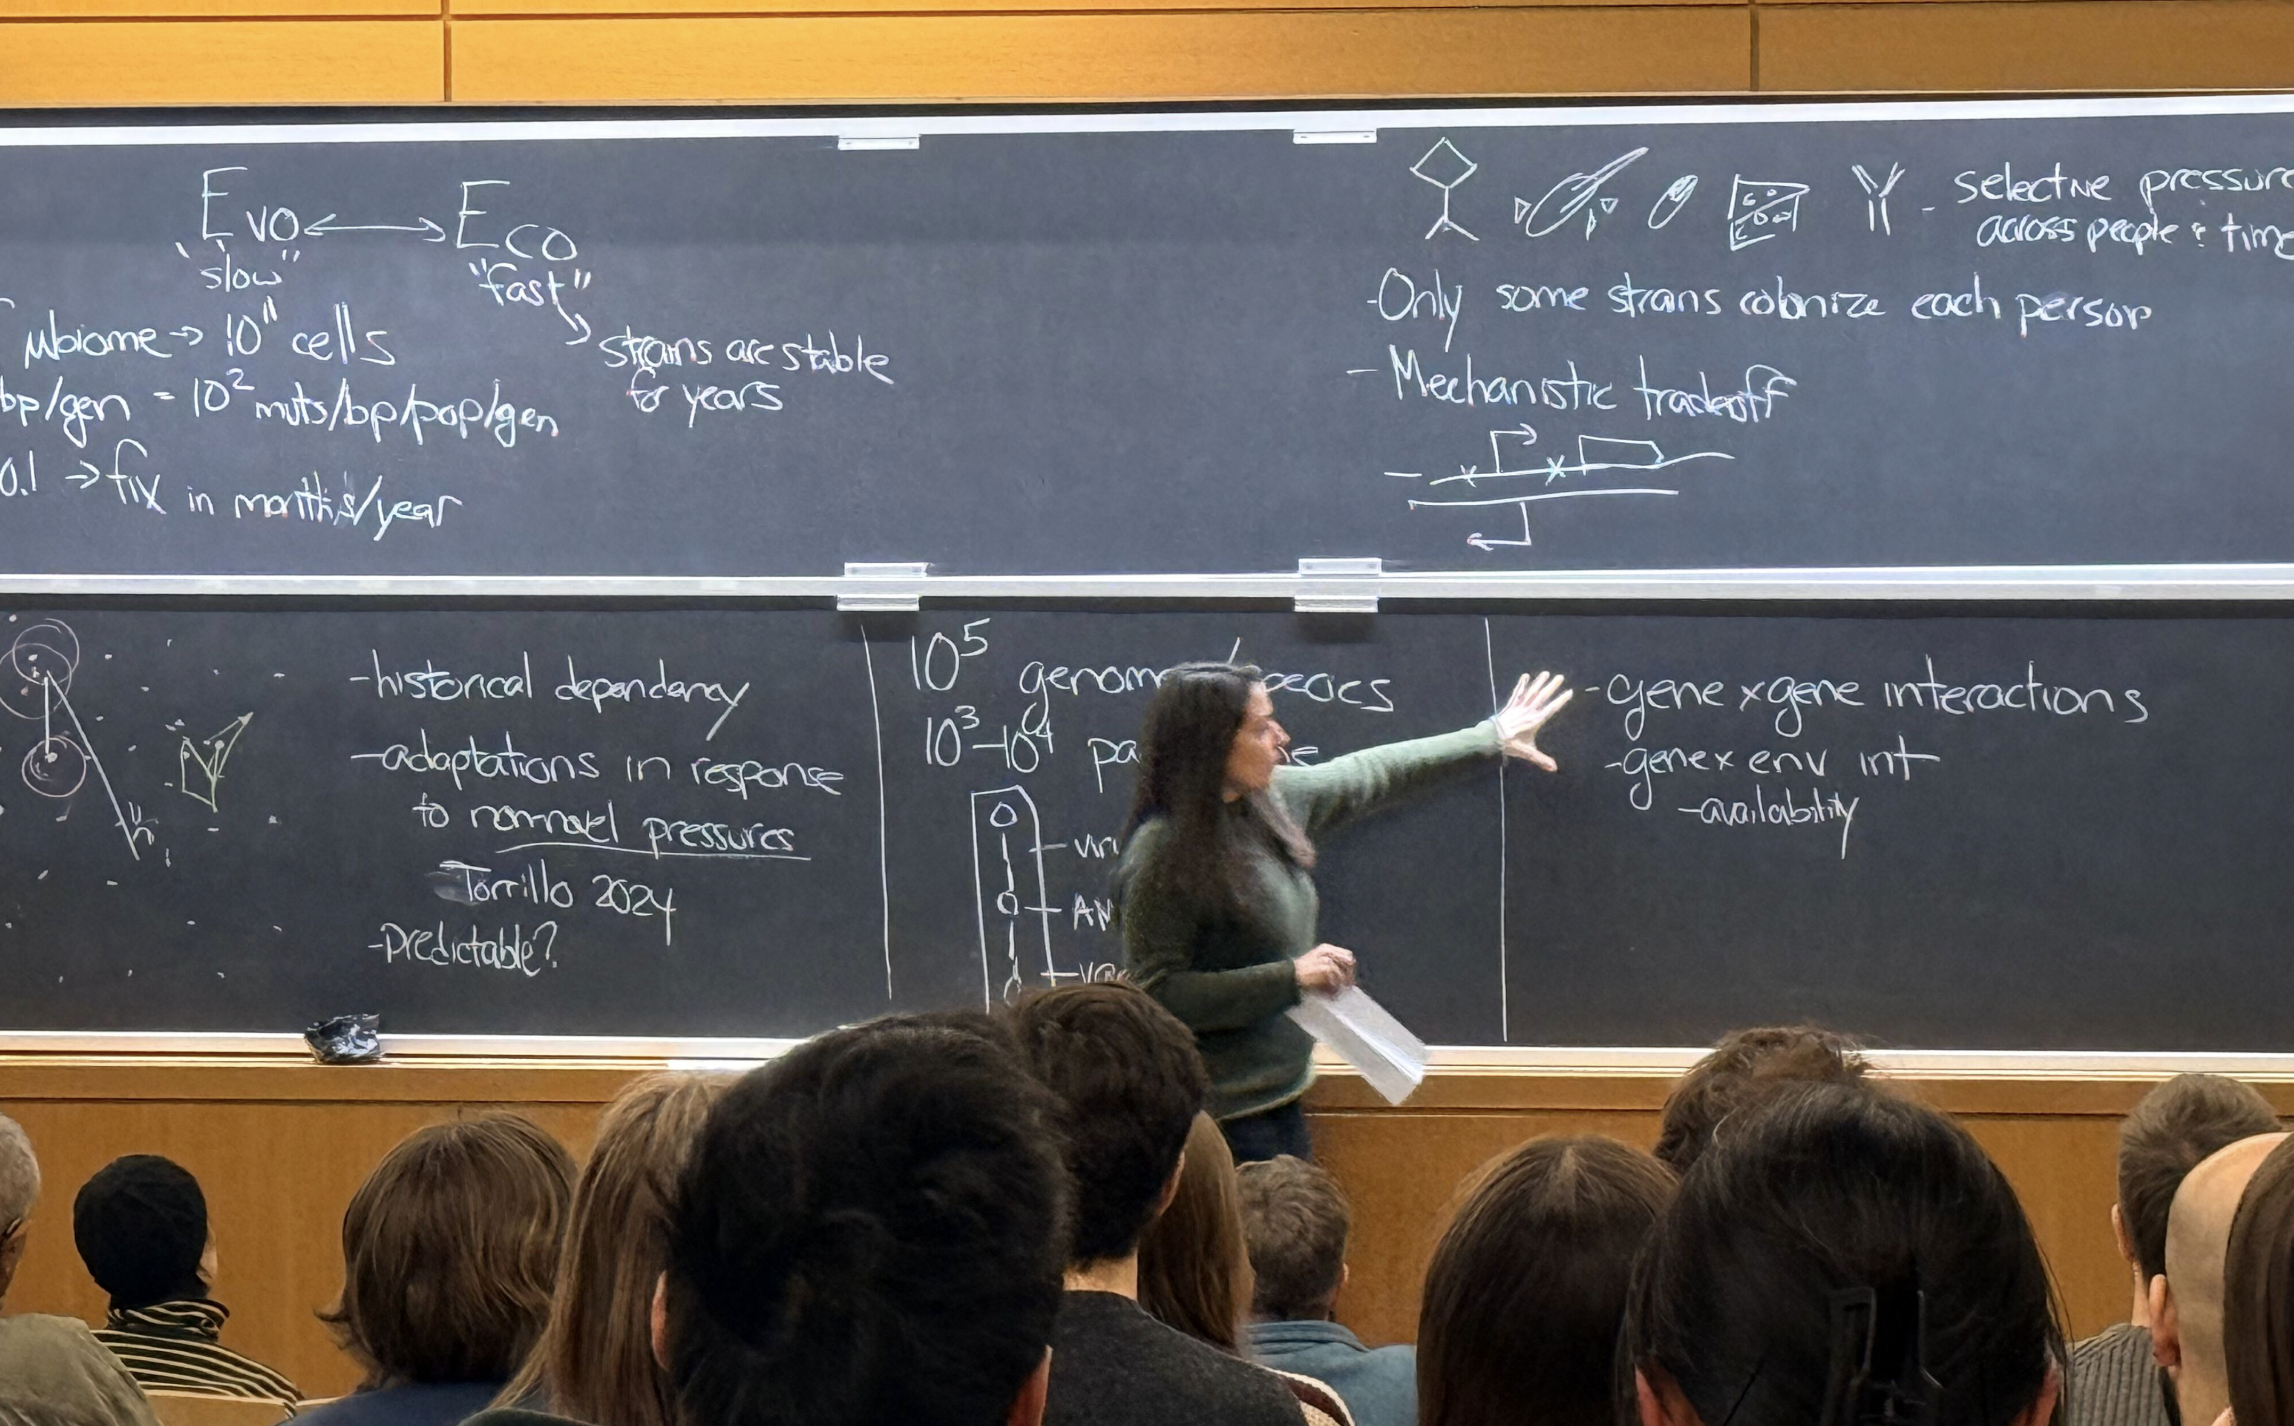 Evo ↔ Eco
"slow" "fast"
μbiome → 10¹¹ cells
strains are stable
for years
bp/gen = 10² muts/bp/pop/gen
0.1 → fix in months/year
- selective pressure
across people & time
- Only some strains colonize each person
- Mechanistic tradeoff
- historical dependency
- adaptations in response
to pressures
Torrillo 2024
- Predictable?
10⁵
10³-10⁴
- gene x gene interactions
- gene x env int
- availability